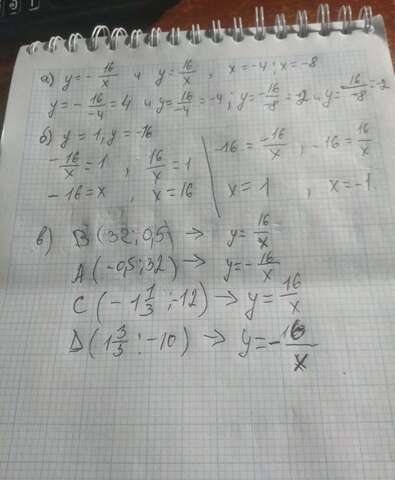 а) y = -16/x и y = 16/x, x = -4; x = -8
y = -16/-4 = 4 и y = 16/-4 = -4; y = -16/-8 = 2 и y = 16/-8 = -2
б) y = 1, y = -16
-16/x = 1, 16/x = 1 | -16 = -16/x, -16 = 16/x
-16 = x, x = 16 | x = 1, x = -1
в) B (32; 0,5) → y = 16/x
A (-0,5; 32) → y = -16/x
C (-1 1/3; -12) → y = 16/x
D (1 3/5; -10) → y = -16/x